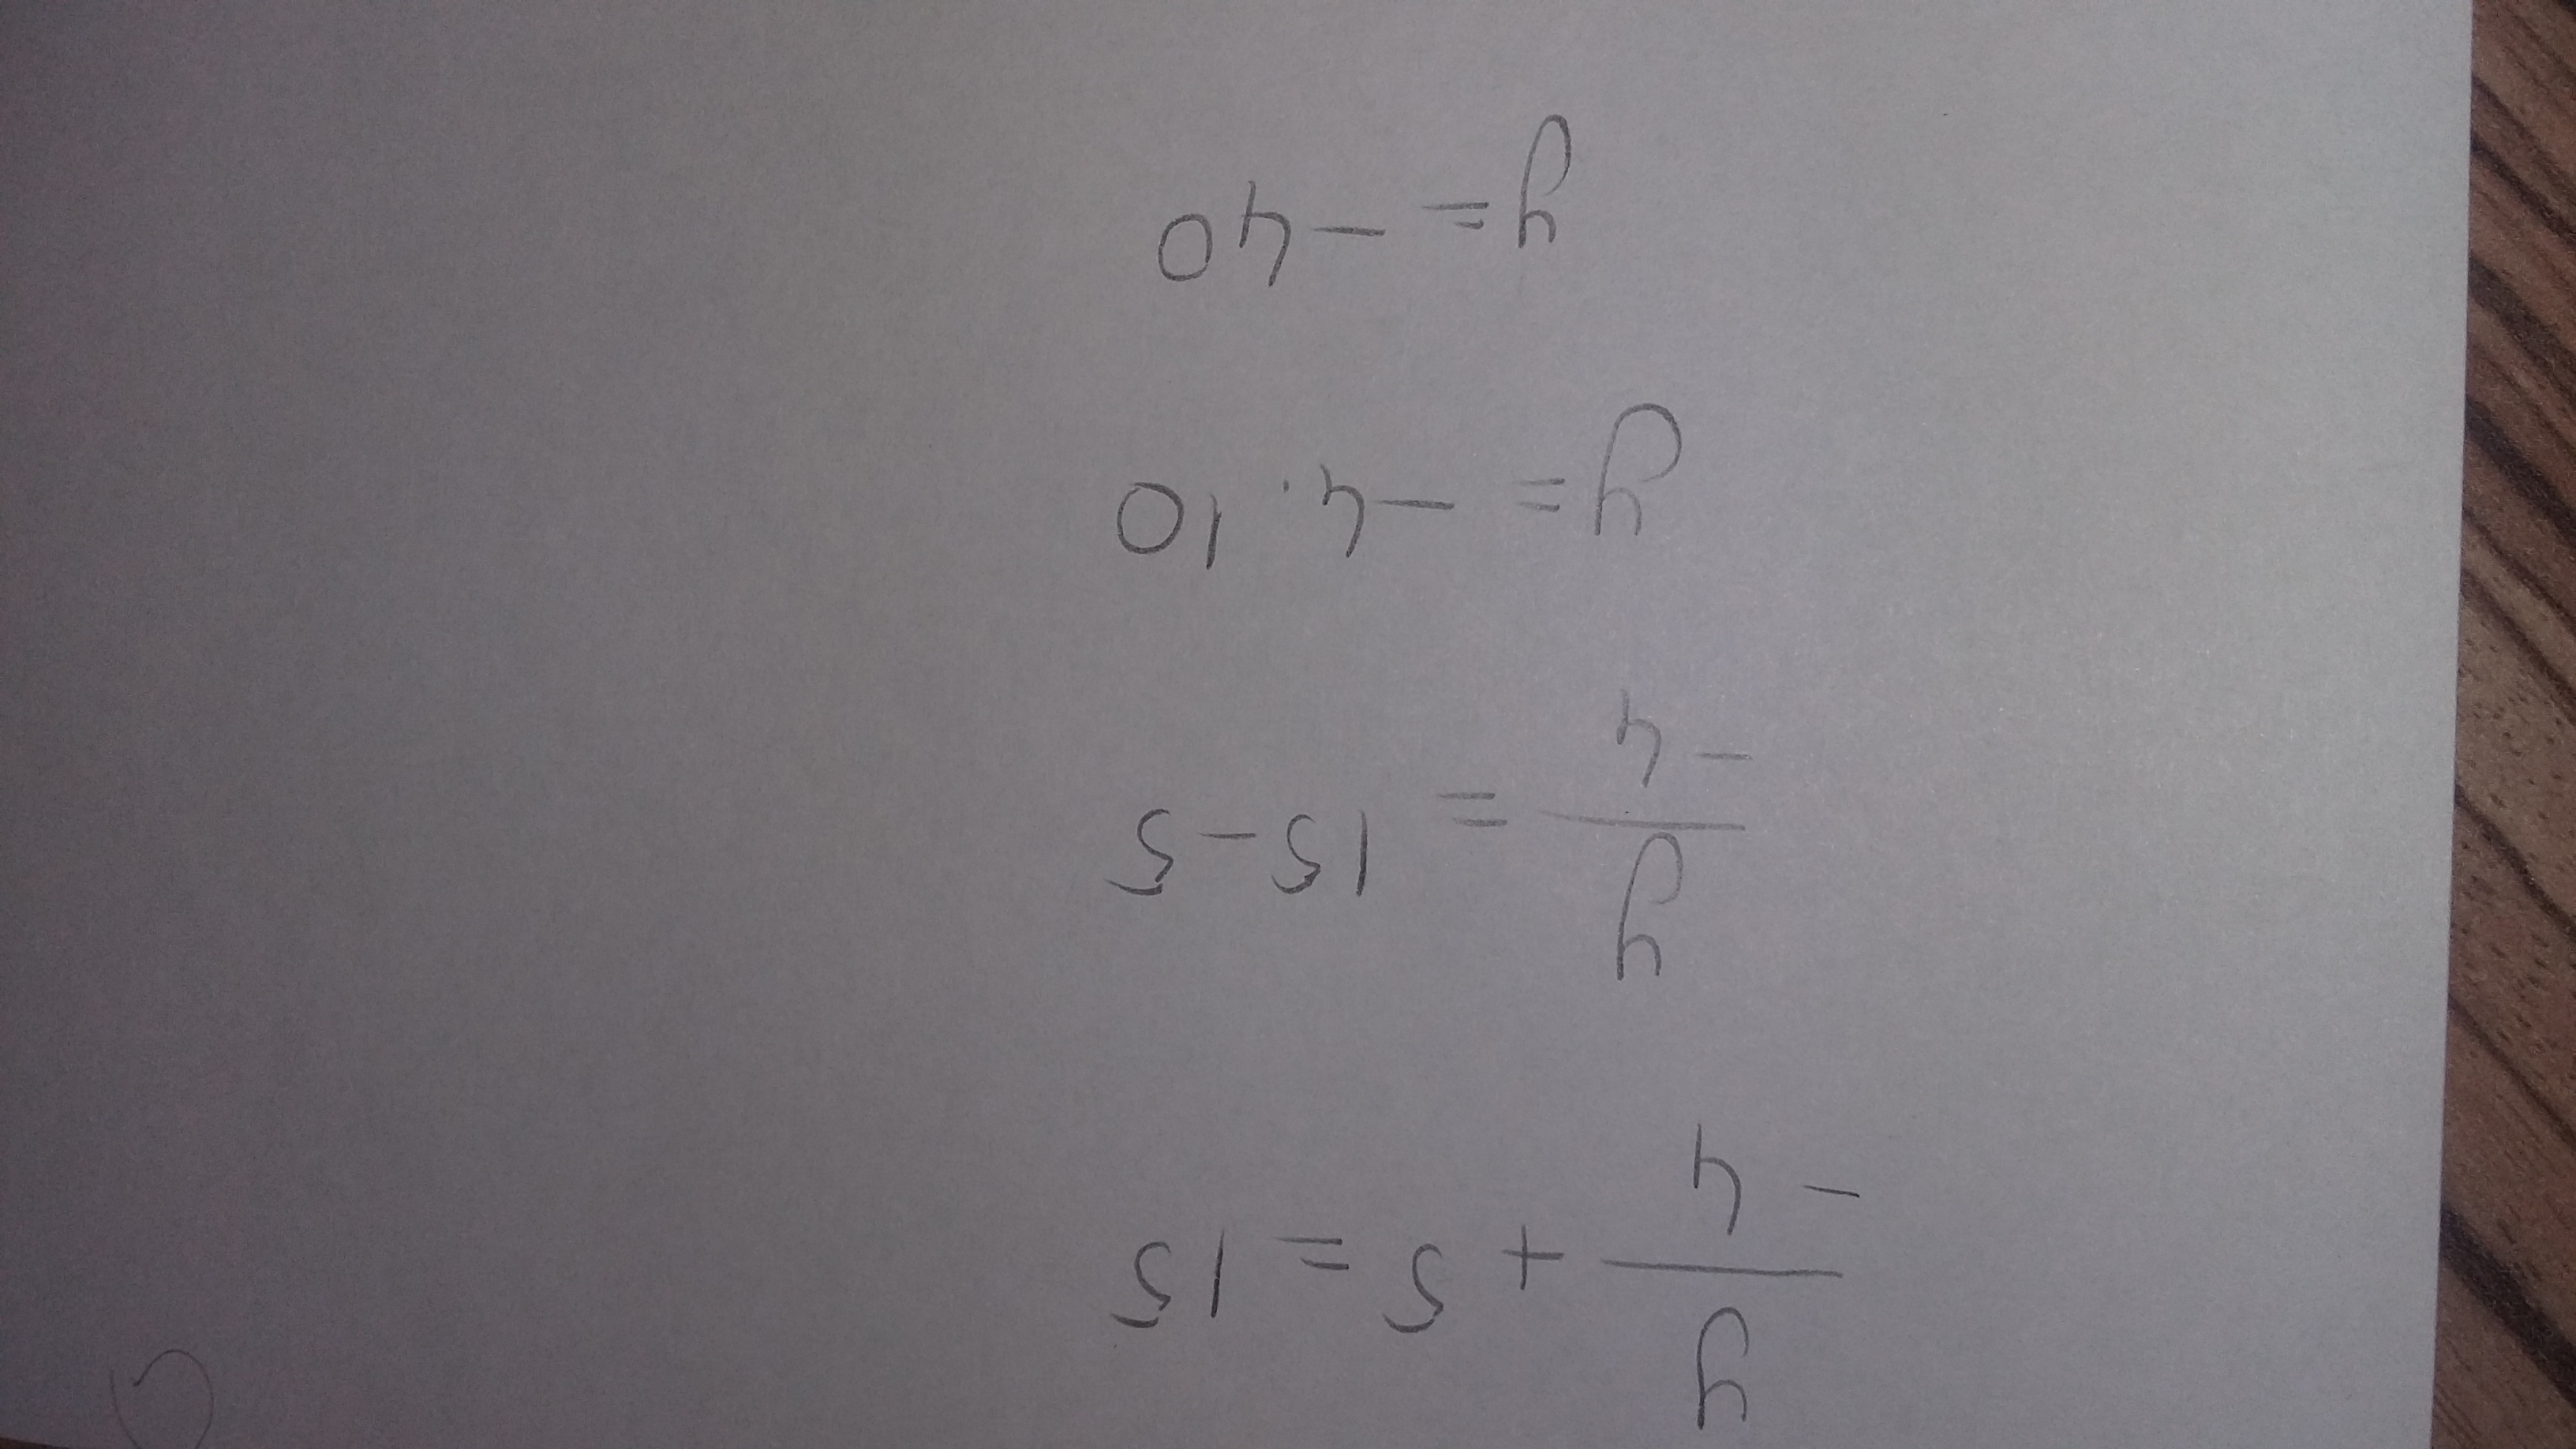 y/-4 + 5 = 15
y/-4 = 15-5
y = -4·10
y = -40